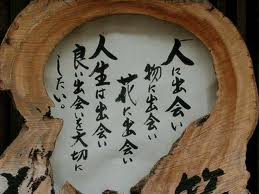 人に出会い
物に出会い
花に出会い
人生は出会い
良い出会いを大切に
したい。